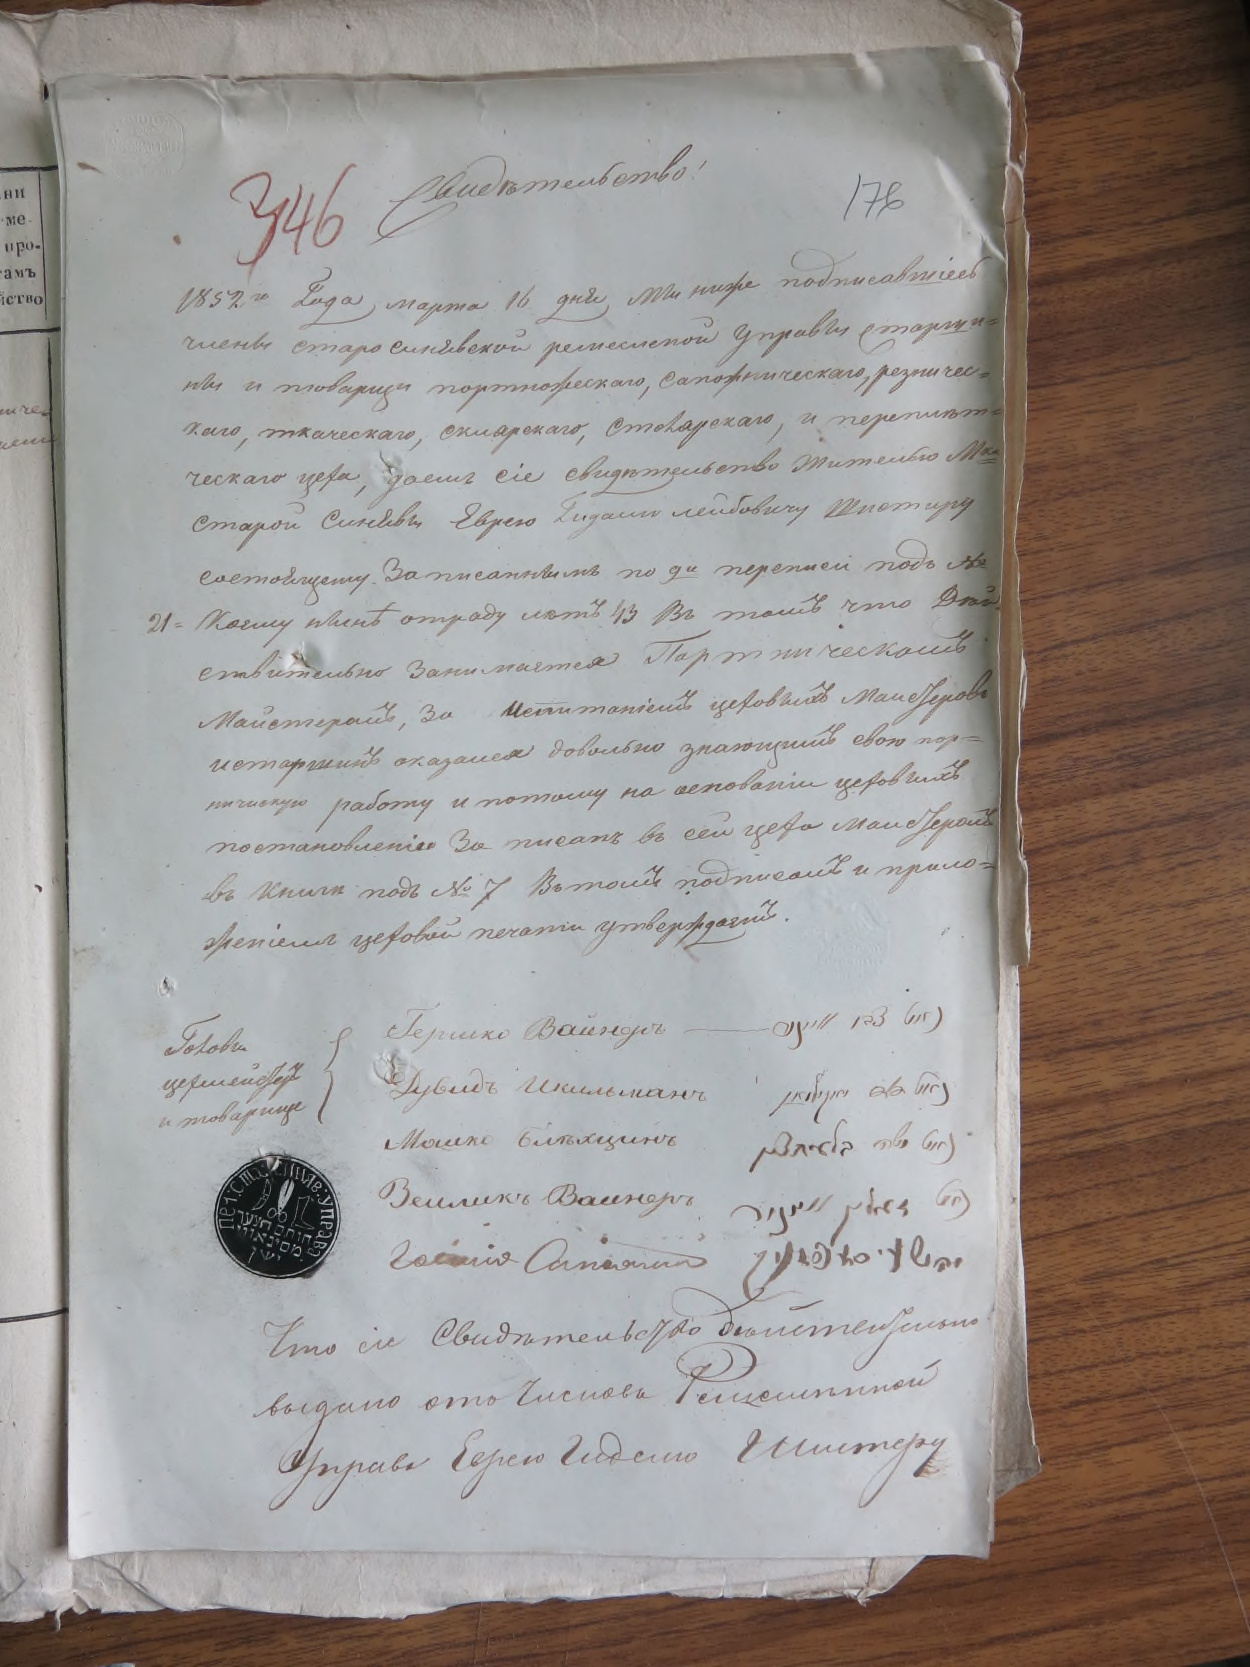 Свидѣтельство!
346
176
1852го Года марта 16 дня, Мы ниже подписавшіесь
члены старосинявской ремесленой Управы Старши=
ны и товарищи портножескаго, сапожническаго, резничес=
каго, ткаческаго, склярскаго, столярскаго, и переплѣт=
ческаго цеха, даемъ сіе свидѣтельство жителью Мка
Старой Синявы Еврею Гидалю Лейбовичу Шистеру
состоящему Записаннымъ по 9й переписи подъ №
21= Коему нынѣ отраду лѣтъ 43 Въ томъ что Дѣй
ствительно Занимается Партническомъ
Майстеромъ, За испитаніемъ цеховыхъ Майстеровъ
истаршинъ оказался довольно знающимъ свою пор=
ническую работу и потому на основаніи цеховыхъ
постановленіе Записанъ въ сей цеха Майстеромъ
въ книги подъ № 7 Въ томъ подписомъ и прило=
женіемъ цеховой печати утверждаемъ.
Головы
цехмейстеръ
и товарище
Гершко Вайнеръ
Дувидъ Икильманъ
Мошко
Зейликъ Вайнеръ
ремесленная управа
Что сіе Свидѣтельство дѣйствительно
выдано отъ Членовъ Ремеслѣнной
Управы Еврею Гидалю Шистеру